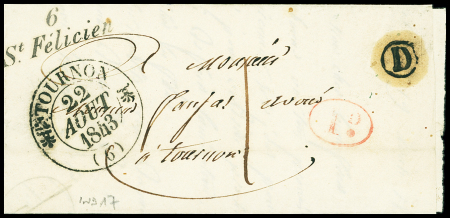 6
St Félicien
TOURNON
22
AOUT
1843
(6)
D
Monsieur
avoué
à tournon
1
1 D